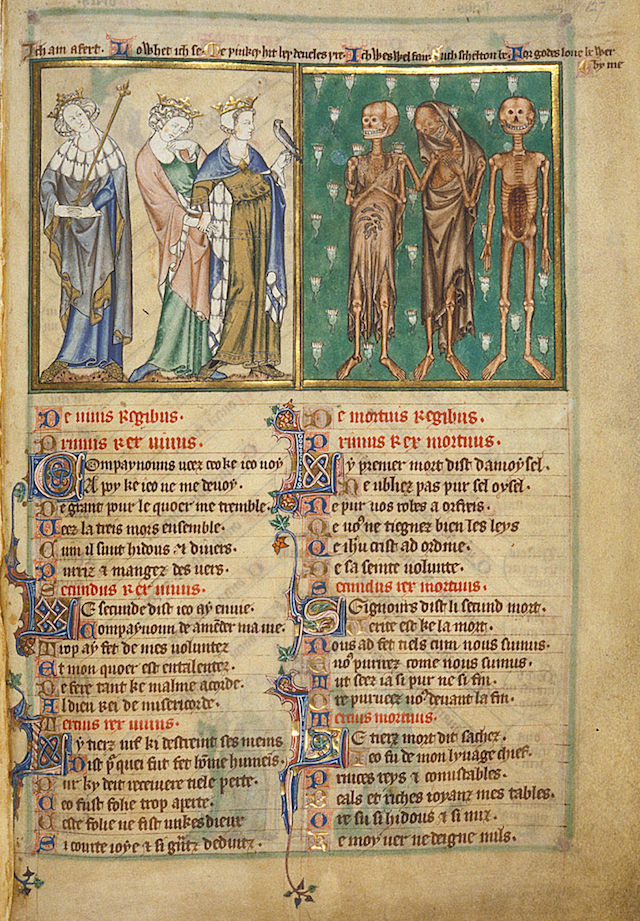 Ich am afert. Lo whet ich se. Me þinkeþ hit beþ develes þre. Ich wes wel fair. Such scheltou be. For godes love be wer
by me
De vivis regibus.
Primus rex vivus.
Compaynouns veez ceo ke ieo voy
A poy ke ieo ne me devoy.
De grant pour le quoer me tremble.
Veez la treis mors ensemble.
Cum il sunt hidous & divers.
Purriz & mangez des vers.
Secundus rex vivus.
Le secunde dist ieo ay envie.
Compaynoun de amender ma vie.
Trop ay fet de mes voluntez
Et mon quoer est entalentez.
De fere tant ke malme acorde.
Al dieu rei de misericorde.
Tercius rex vivus.
Ly tierz vif ki destreint ses meins
Dist pur quei fut fet home humeis.
Pur ky deit receivere tiele perte.
Ceo fust folie trop aperte.
Ceste folie ne fist unkes dieux
Si courte ioye & si gūtz deduitz.
De mortuis regibus.
Primus rex mortuus.
Ly premer mort dist damoysel.
Ne ubliez pas pur sel oysel.
Ne pur vos robes a orfreis.
Qe vos ne tiegnez bien les leys
Qe ihu crist ad ordine.
De sa seinte volunte.
Secundus rex mortuus.
Seignours dist li secund mort.
Verite est ke la mort.
Nous ad fet tiels cum nous sumus.
E vos purrirez come nous sumus.
Tut seez ia si pur ne si fin.
Ore purveez vos devant la fin.
Tercius mortuus.
Le tierz mort dit sachez.
Ieo fu de mon lynage chief.
Princes reys & conustables.
Beals et riches ioyanz mes tables.
Ore su si hidous & si nuz.
Ke moy ver ne deigne nuls.